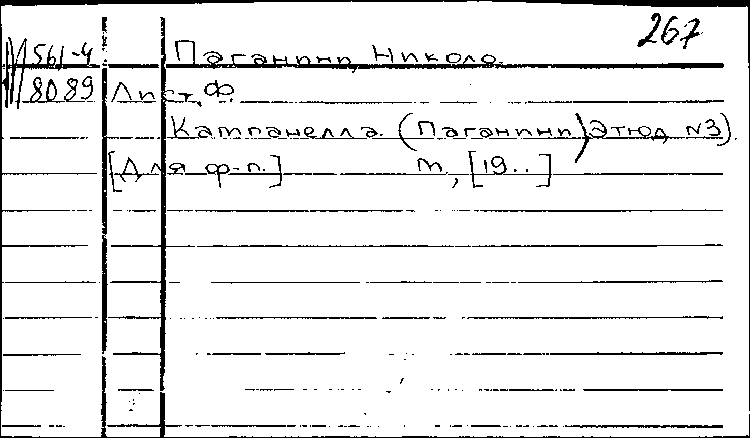 267
М 561-4 Паганини, Николо.
8089 Лист, Ф.
Кампанелла. (Паганини) Этюд №3).
[Для ф-п.] М, [19..]